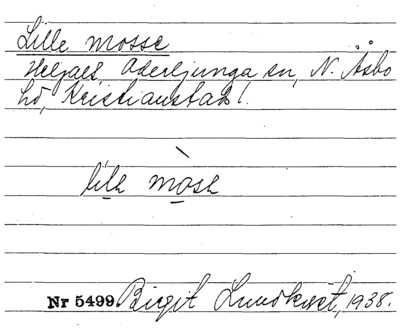 Lille mosse
Heljalt, Oderljunga sn, N. Åsbo
hd, Kristianstads l.
lilh mosh
Nr 5499 Birgit Lundkvist, 1938.